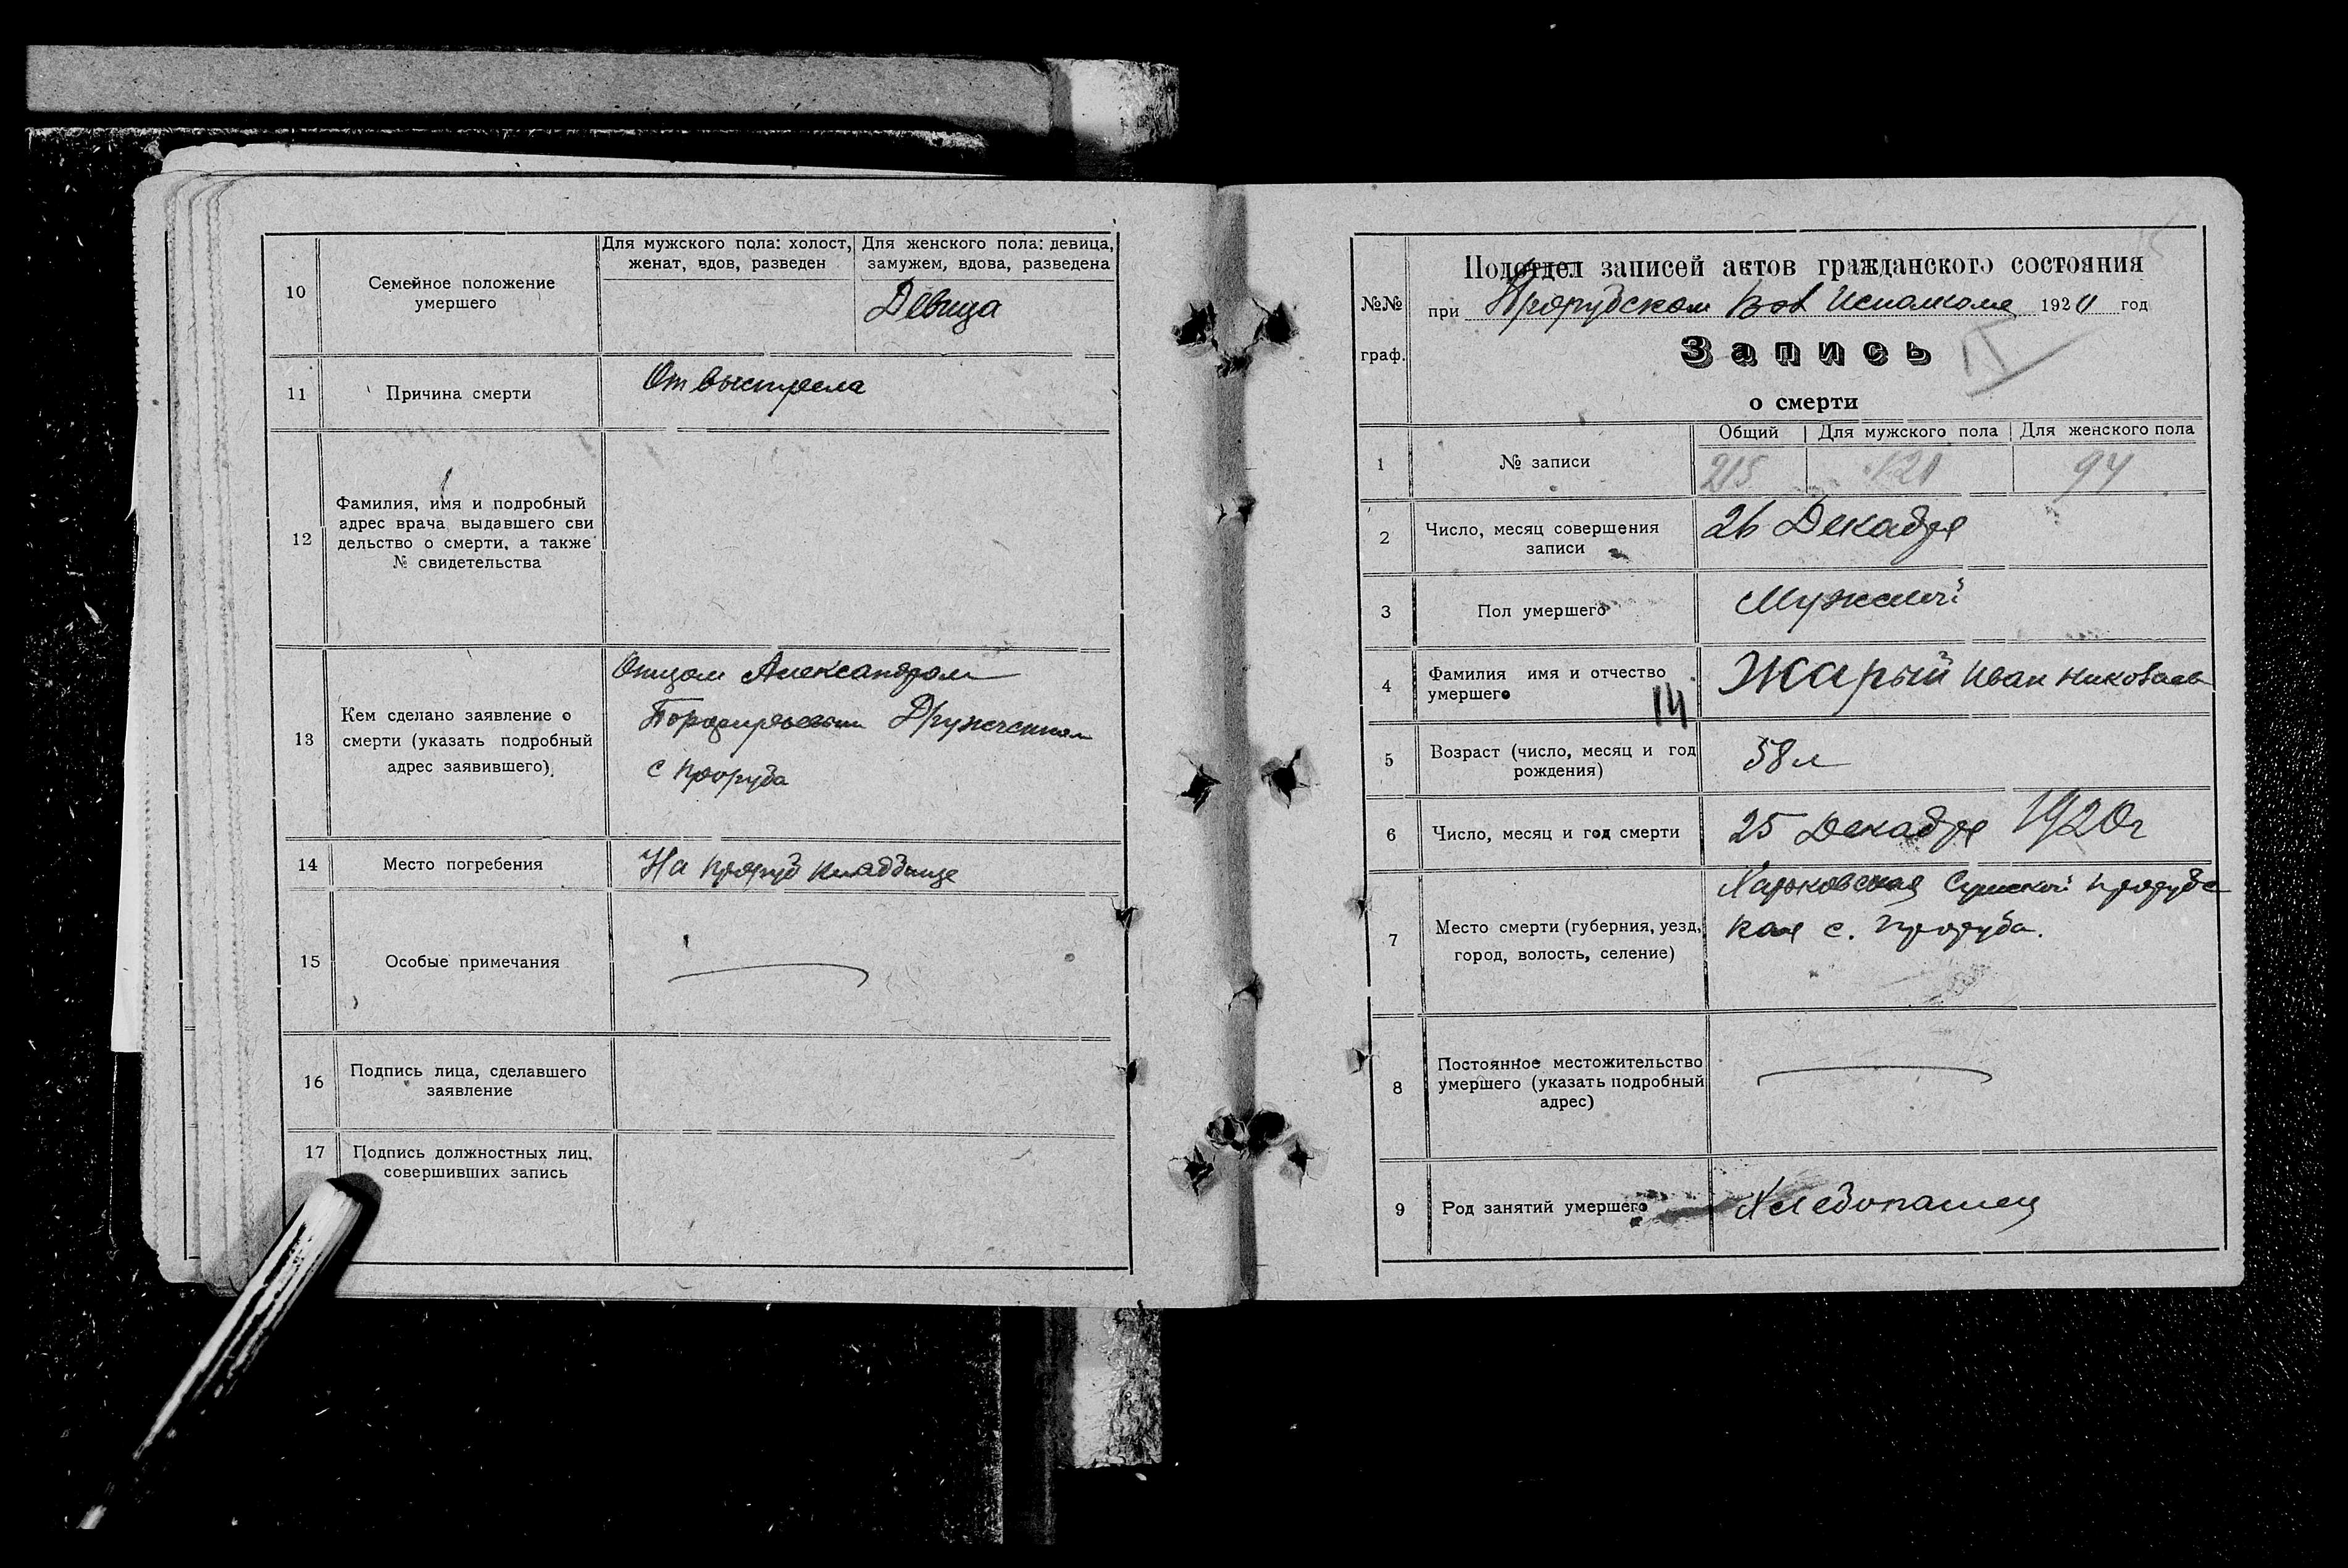 10
Семейное положение
умершего
Для мужского пола: холост,
женат, вдов, разведен
Для женского пола: девица,
замужем, вдова, разведена
Девица
11
Причина смерти
От выстрела
12
Фамилия, имя и подробный
адрес врача выдавшего сви
дельство о смерти, а также
№ свидетельства
13
Кем сделано заявление о
смерти (указать подробный
адрес заявившего).
Отцом Александром
Порфирьевым
с Проруба
14
Место погребения
На Проруб кладбище
15
Особые примечания
16
Подпись лица, сделавшего
заявление
17
Подпись должностных лиц,
совершивших запись
№№
граф.
Подотдел записей актов гражданского состояния
при Прорубском Вол Исполкоме 1920 год
Запись
о смерти
1
№ записи
Общий
Для мужского пола
Для женского пола
215
121
94
2
Число, месяц совершения
записи
26 Декабря
3
Пол умершего
Мужской
4
Фамилия имя и отчество
умершего
14
Жарый Иван Николаев
5
Возраст (число, месяц и год
рождения)
58 л
6
Число, месяц и год смерти
25 Декабря 1920 г
7
Место смерти (губерния, уезд,
город, волость, селение)
Харьковская Сумской Прорубс
кая с. Проруба.
8
Постоянное местожительство
умершего (указать подробный
адрес)
9
Род занятий умершего
Хлебопашец